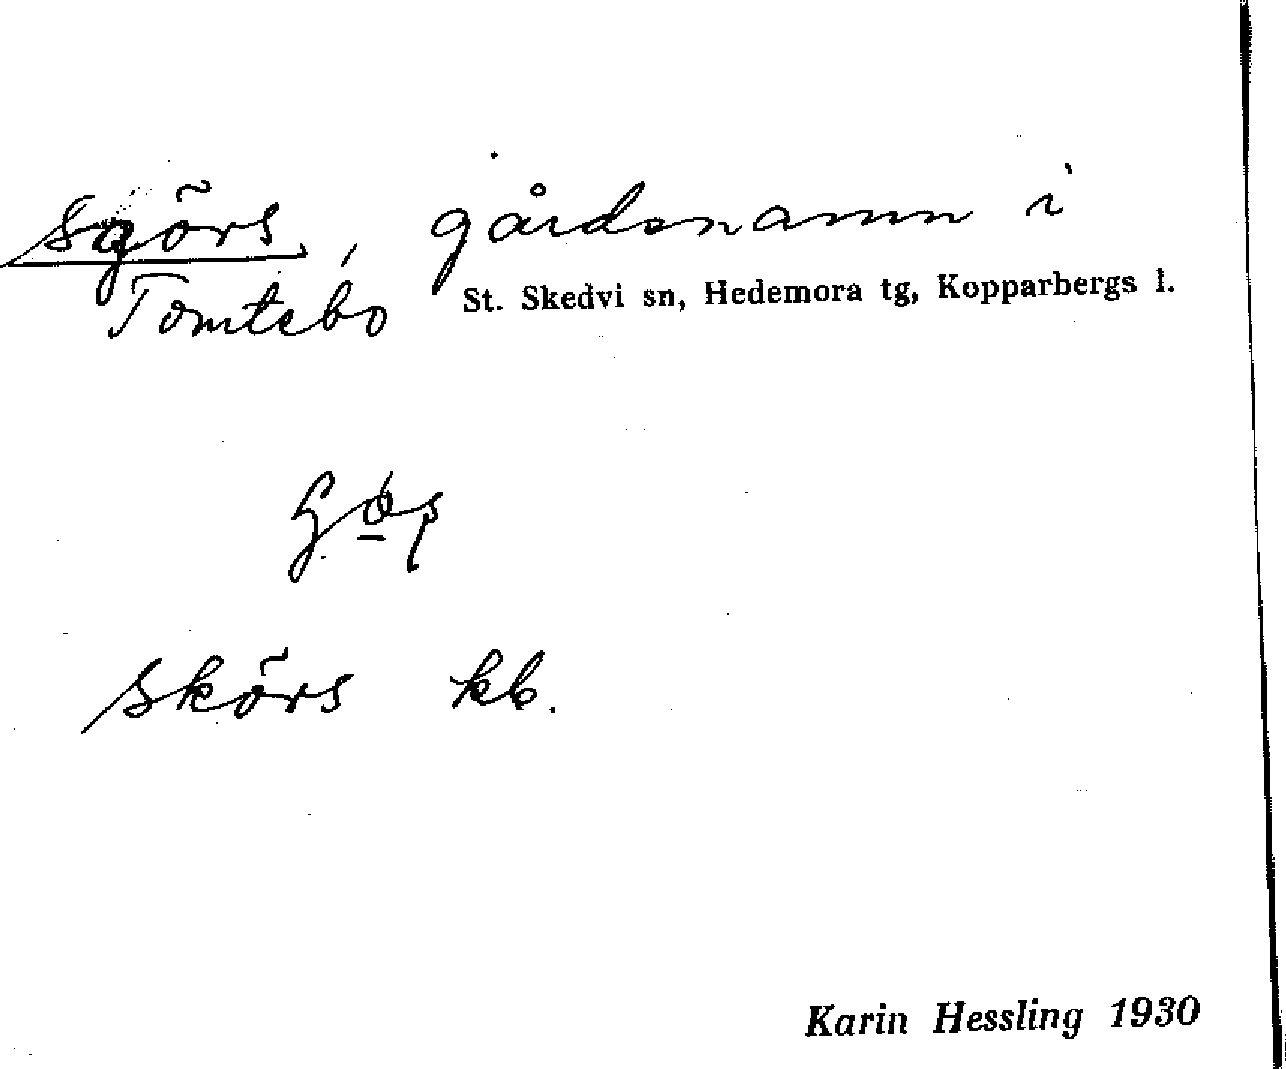 sgörs, gårdsnamn i
Tomtebo St. Skedvi sn, Hedemora tg, Kopparbergs l.
skörs kb.
Karin Hessling 1930